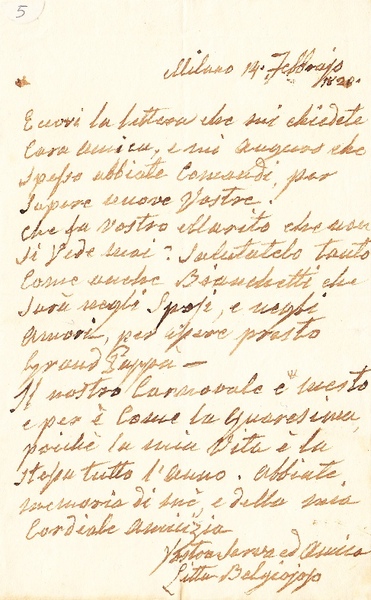 5
Milano 14. Febbrajo
1828.
Eccovi la lettera che mi chiedete
Cara amica, e mi auguro che
spesso abbiate Comandi, per
sapere nuove Vostre.
Che fa vostro Marito che non
si Vede mai? Salutatelo tanto
Come anche Bianchetti che
sarà negli Sposi, e negli
Amori, per essere presto
Grand Pappa —
Il nostro Carnovale è mesto
e per è Come la Quaresima,
poichè la mia Vita è la
stessa tutto l'anno. Abbiate
memoria di mè, e della mia
Cordiale Amicizia
Vostra Serva ed Amica
Litta Belgiojoso